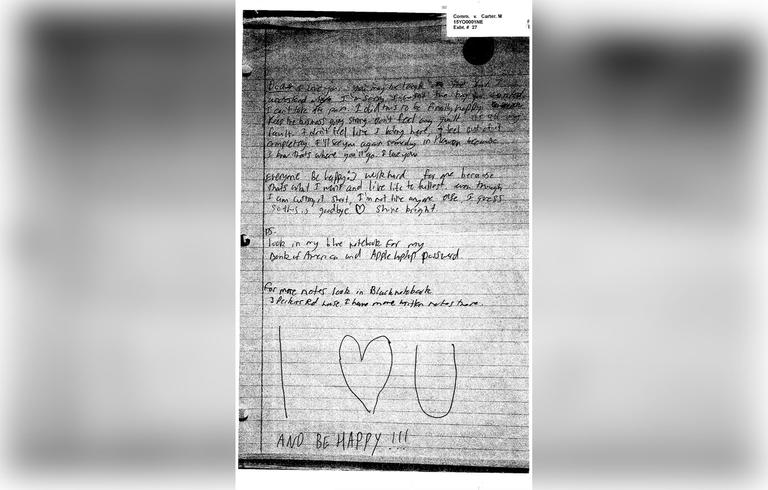 Comm. v. Carter, M
15YO0001NE
Exbt. # 27
I love you. you may be
understand I'm sorry
I can't take the pain I did this to be finally happy.
Keep the business going strong Don't feel any guilt its not my
fault. I don't feel like I belong here, I feel out of it
completely. I'll see you again someday in Heaven
I know thats where you'll go. I love you
everyone Be happy :) work hard for me because
thats what I want and live life to fullest even though
I am cutting it short, I'm not like anyone else I guess
so this is goodbye ♡ shine bright.
PS.
look in my blue notebook for my
Bank of America and Apple laptop password
For more notes look in Black notebook
I have more written notes there.
I ♡ U
AND BE HAPPY !!!